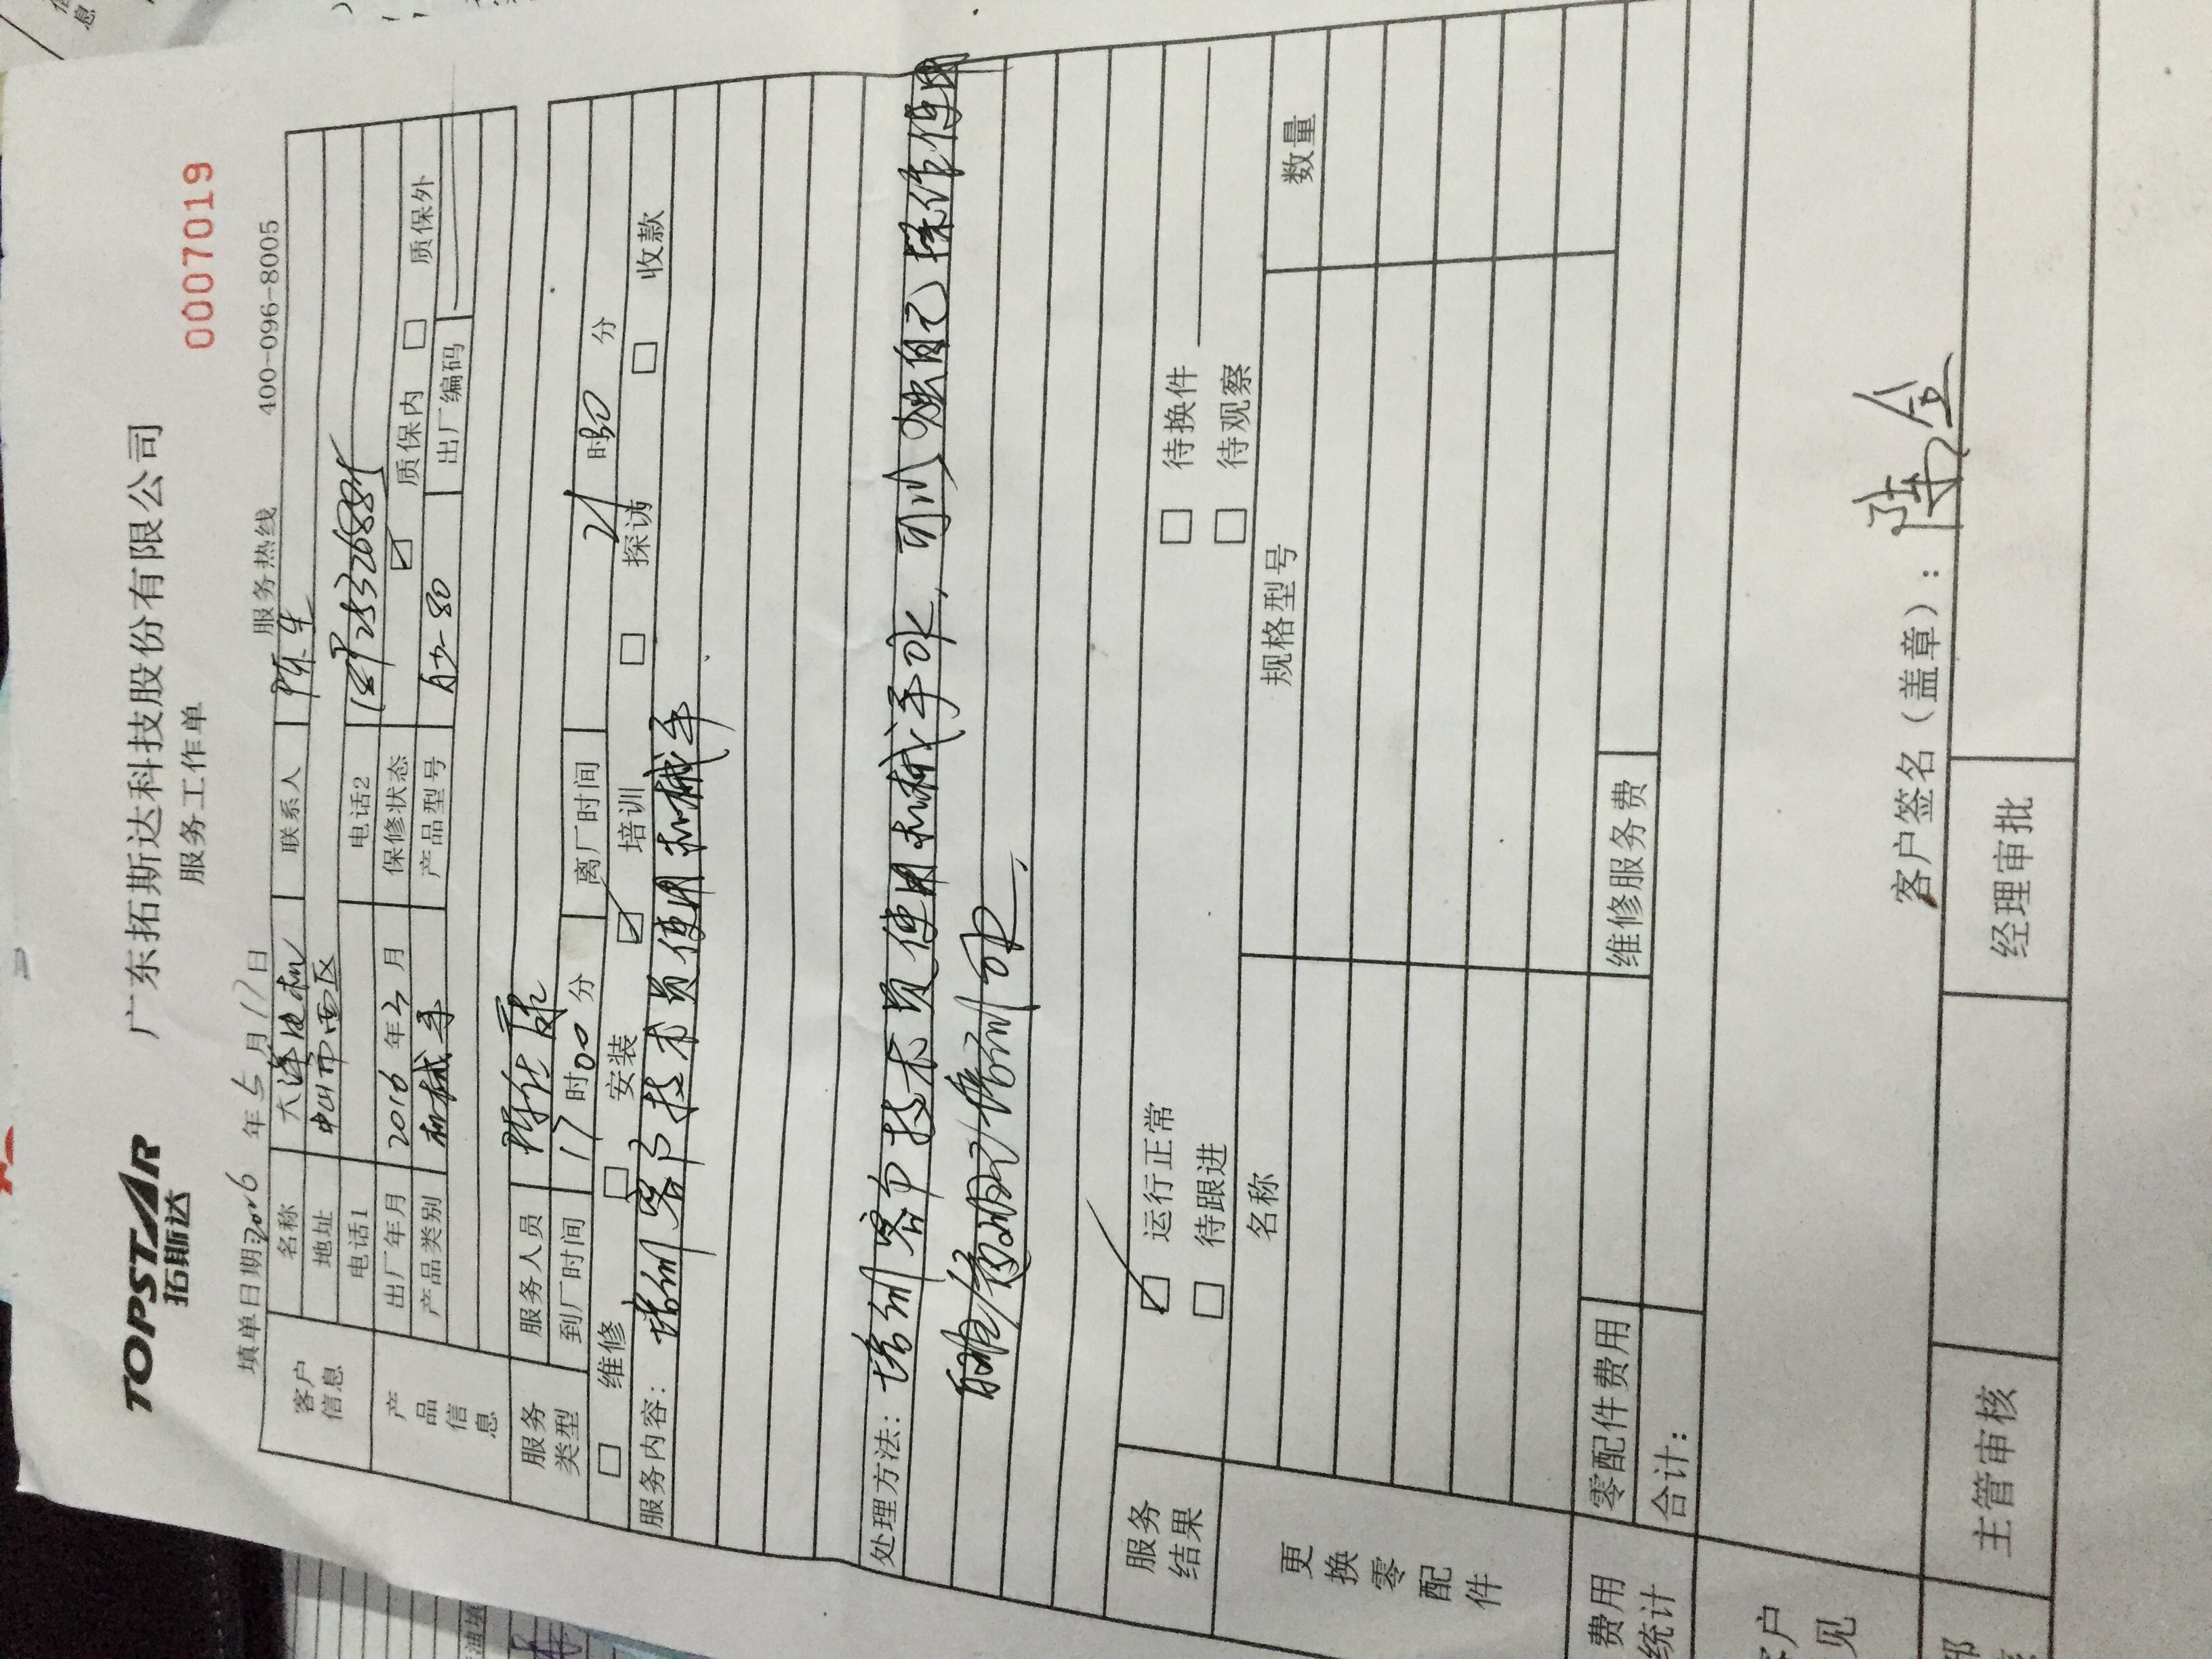 TOPSTAR
拓斯达
广东拓斯达科技股份有限公司
服务工作单
0007019
填单日期:2016 年 5 月 17 日 服务热线 400-096-8005
客户信息
名称 大洋电机 联系人 陈生
地址 中山市西区
电话1 电话2
产品信息
出厂年月 2016 年 3 月 保修状态 ☑ 质保内 □ 质保外
产品类别 机械手 产品型号 出厂编码
服务类型
服务人员
到厂时间 17 时 00 分 离厂时间 21 时 30 分
□ 维修 □ 安装 ☑ 培训 □ 探访 □ 收款
服务内容: 培训客户技术员使用机械手
处理方法: 培训客户技术员使用机械手OK, 可以独自己操作使用
培训OK.
服务结果
☑ 运行正常 □ 待换件
□ 待跟进 □ 待观察
更换零配件
名称 规格型号 数量
费用统计
零配件费用 维修服务费
合计:
客户签名(盖章):
主管审核 经理审批